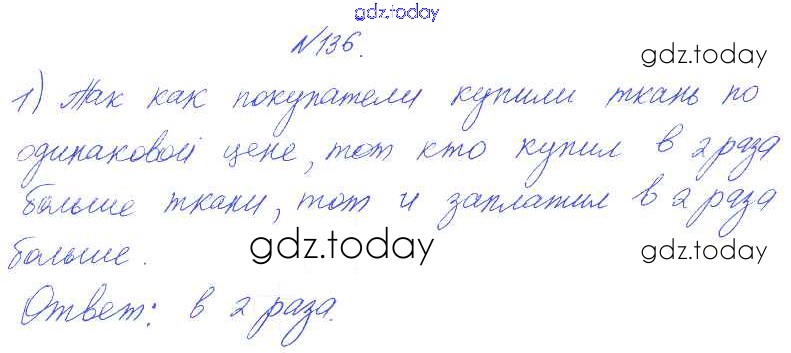 gdz.today
№136.
gdz.today
1) Так как покупатели купили ткань по
одинаковой цене, тот кто купил в 2 раза
больше ткани, тот и заплатил в 2 раза
больше.
gdz.today
gdz.today
Ответ: в 2 раза.